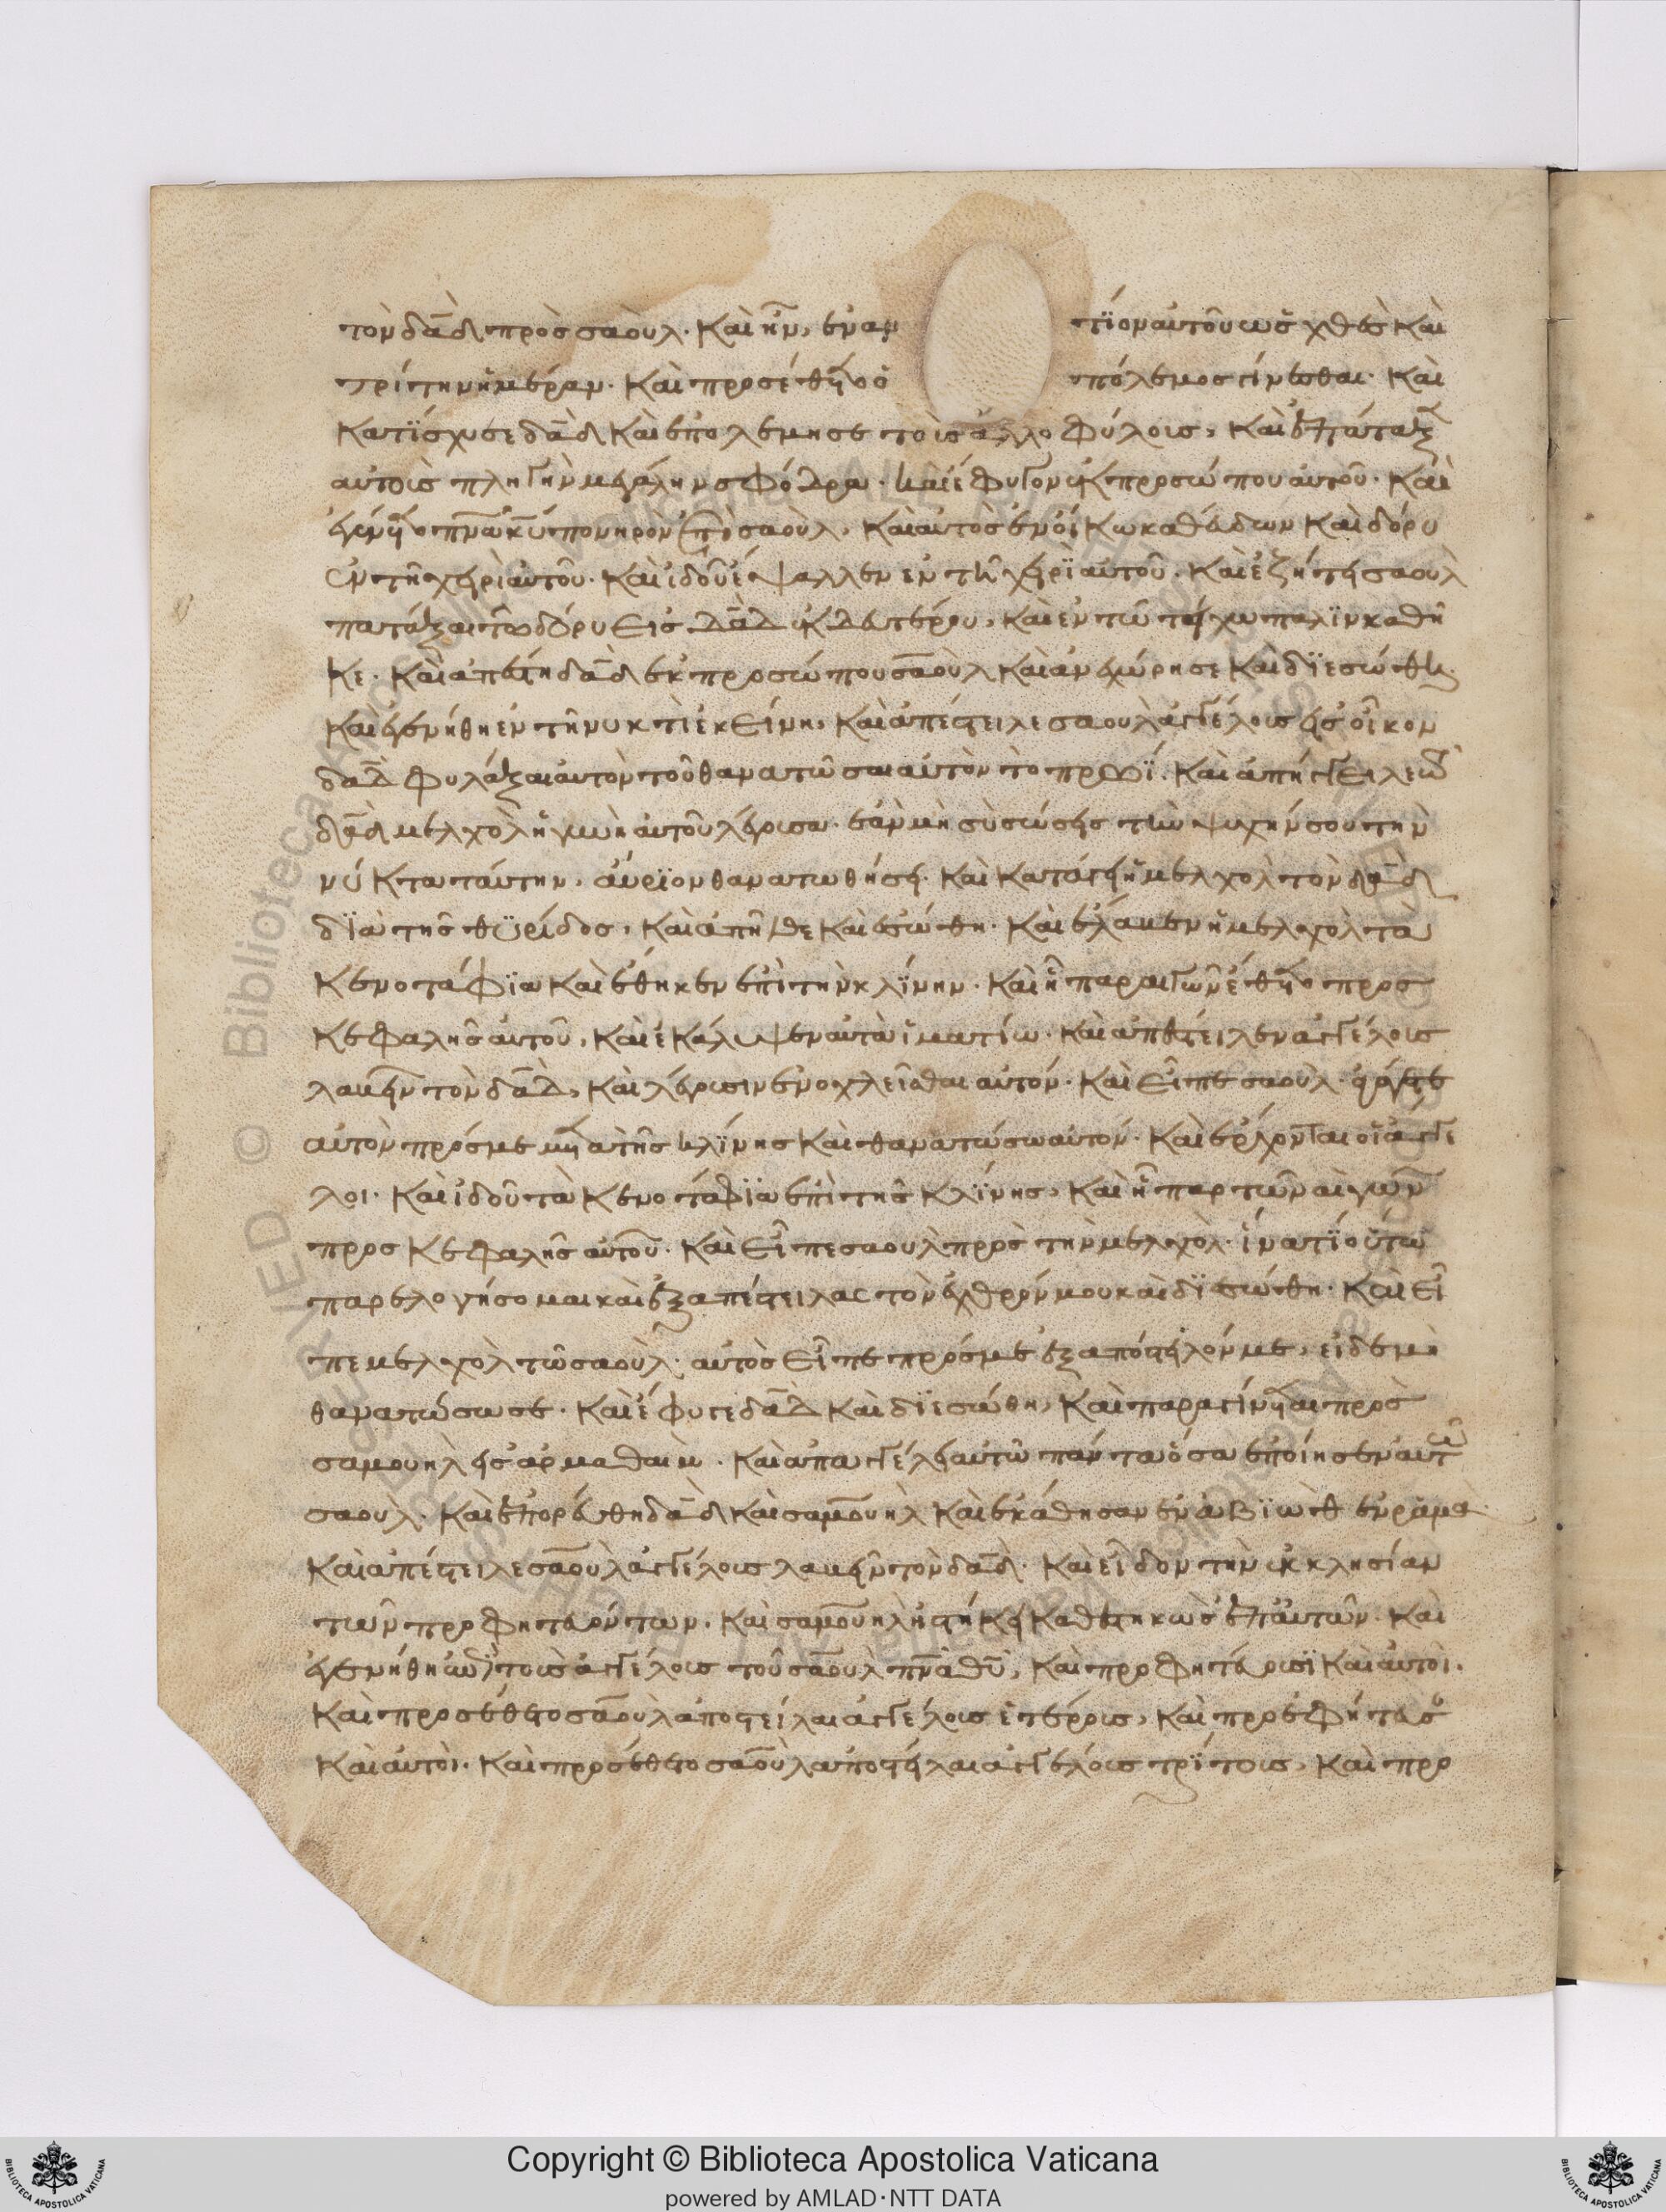 τὸν δᾱδ πρὸς σαούλ. Καὶ ἦν, ἐναν τίον αὐτοῦ ὡς χθὲς καὶ
τρίτην ἡμέραν. Καὶ προσέθετο ὁ πόλεμος γίνεσθαι. Καὶ
κατΐσχυσε δᾱδ καὶ ἐπολέμησε τοῖς ἀλλοφύλοις, καὶ ἐπάταξεν
αὐτοῖς πληγὴν μεγάλην σφόδρα. Καὶ ἔφυγον ἐκ προσώπου αὐτοῦ. Καὶ
ἐγένετο πνᾱ κῡ πονηρὸν ἐπὶ σαούλ, καὶ αὐτὸς ἐν οἴκω καθεύδων καὶ δόρυ
ἐν τῆ χειρὶ αὐτοῦ. Καὶ ἰδοῦ ἔψαλλεν ἐν τῆ χειρῒ αὐτοῦ. Καὶ ἐζήτει σαουλ
πατάξαι τὸ δόρυ εἰς δᾱδ ἐκ δευτέρου, καὶ ἐν τῶ τείχω παλϊν καθῆ
κε. Καὶ ἀπέστη δᾱδ ἐκ προσώπου σαοὺλ καὶ ἀνεχώρησε καὶ δϊεσώθη.
Καὶ ἐγενήθη ἐν τῆ νυκτὶ ἐκείνη, καὶ ἀπέστειλε σαουλ ἀγγέλους εἰς οἶκον
δᾱδ φυλάξαι αὐτὸν τοῦ θανατῶσαι αὐτὸν τὸ πρωΐ. Καὶ ἀπήγγειλε τῶ
δᾱδ μελχὸλ ἡ γυνὴ αὐτοῦ λέγουσα. ἐὰν μὴ σὺ σώσης τὴν ψυχήν σου τὴν
νύκτα ταύτην, αὔρϊον θανατωθήση. Καὶ κατάγει ἡ μελχὸλ τὸν δᾱδ
δϊὰ τῆς θυρίδος, καὶ ἀπῆλθε καὶ ἐσώθη. Καὶ ἔλαβεν ἡ μελχὸλ τὰ
κενοτάφϊα καὶ ἔθηκεν ἐπὶ τὴν κλίνην. Καὶ ἧπαρ αἰγῶν ἔθετο προς
κεφαλῆς αὐτοῦ, καὶ ἐκάλυψεν αὐτὰ ἱματίω. Καὶ ἀπέστειλεν ἀγγέλους
λαβεῖν τὸν δᾱδ, καὶ λέγουσιν ἐνοχλεῖσθαι αὐτόν. Καὶ εἶπε σαούλ. ἀγάγετε
αὐτὸν πρός με μετὰ τῆς κλίνης καὶ θανατώσω αὐτόν. Καὶ ἔρχονται οἱ ἄγγε
λοι. Καὶ ἰδοῦ τὰ κενοτάφϊα ἐπὶ τῆς κλίνης, καὶ ἧπαρ τῶν αἰγῶν
προς κεφαλῆς αὐτοῦ. Καὶ εἶπε σαουλ πρὸς τὴν μελχόλ. ἱνατί οὕτω
παρελογήσο μαι καὶ ἐξαπέστειλας τὸν ἐχθρόν μου καὶ δϊεσώθη. Καὶ εἶ
πε μελχὸλ τῶ σαούλ. αὐτὸς εἶπε πρός με ἐξαπόστειλόν με, εἰ δὲ μὴ
θανατώσω σε. Καὶ ἔφυγε δᾱδ καὶ δϊεσώθη, καὶ παραγίνεται πρὸς
σαμουηλ εἰς ἀρμαθαίμ. Καὶ ἀπαγγέλει αὐτῶ πάντα ὅσα ἐποίησεν αὐτῶ
σαούλ. Καὶ ἐπορεύθη δᾱδ καὶ σαμουηλ καὶ ἐκάθησαν ἐν ἀβϊὼθ ἐν ῥαμᾶ.
Καὶ ἀπέστειλε σαοὺλ ἀγγέλους λαβεῖν τὸν δᾱδ. Καὶ εἶδον τὴν ἐκκλησίαν
τῶν προφητευόντων, καὶ σαμουηλ εἱστήκει καθεστηκὼς ἐπ' αὐτῶν. Καὶ
ἐγενήθη ἐπὶ τοῖς ἀγγέλοις τοῦ σαοὺλ πνᾱ θῡ, καὶ προφητεύουσϊ καὶ αὐτοί.
Καὶ προσέθετο σαοὺλ ἀποστεῖλαι ἀγγέλους ἑτέρους, καὶ προεφήτευσαν
καὶ αὐτοί. Καὶ προσέθετο σαοὺλ ἀποστεῖλαι ἀγγέλους τρΐτους, καὶ προ
Copyright © Biblioteca Apostolica Vaticana
powered by AMLAD·NTT DATA